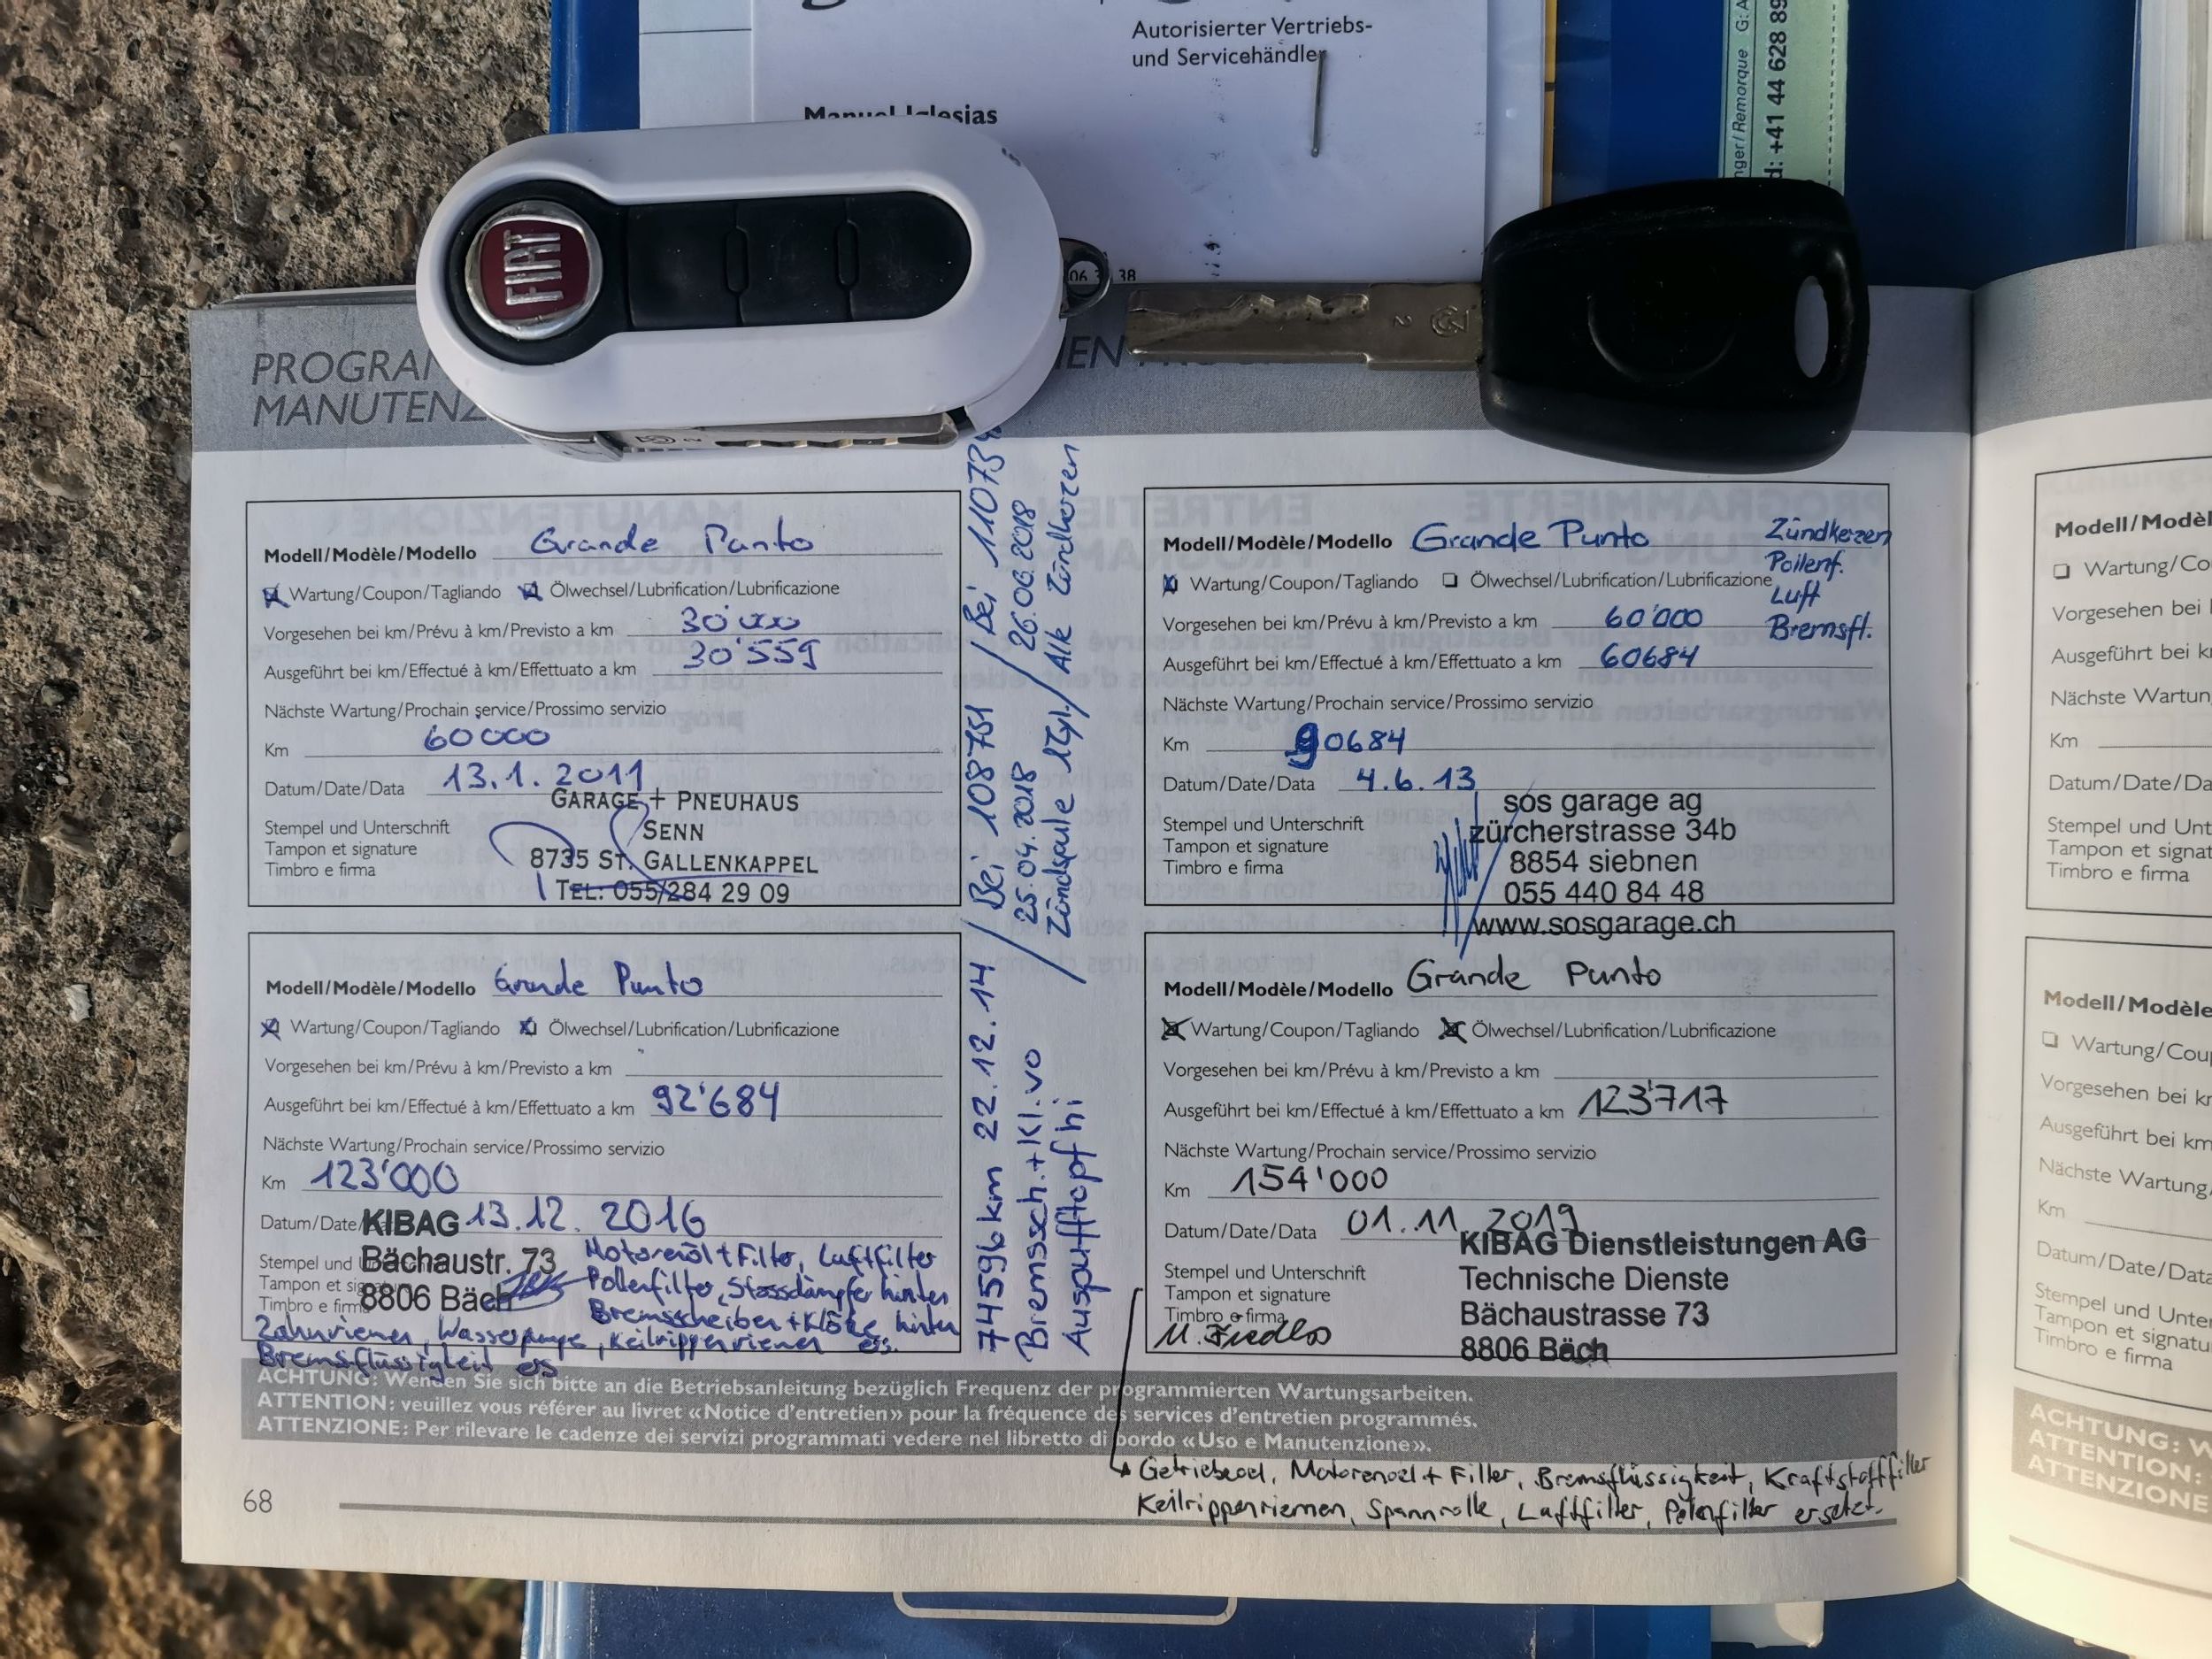 Autorisierter Vertriebs-
und Servicehändler
Manuel Iglesias
nger/Remarque G: A
d: +41 44 628 89
FIAT
38
PROGRAM
MANUTENZ
Modell/Modèle/Modello Grande Punto
Wartung/Coupon/Tagliando Ölwechsel/Lubrification/Lubrificazione
Vorgesehen bei km/Prévu à km/Previsto a km 30'000
Ausgeführt bei km/Effectué à km/Effettuato a km 30'559
Nächste Wartung/Prochain service/Prossimo servizio
Km 60'000
Datum/Date/Data 13.1.2011
Stempel und Unterschrift
Tampon et signature
Timbro e firma
GARAGE + PNEUHAUS
SENN
8735 ST. GALLENKAPPEL
TEL: 055/284 29 09
Modell/Modèle/Modello Grande Punto
Wartung/Coupon/Tagliando Ölwechsel/Lubrification/Lubrificazione
Vorgesehen bei km/Prévu à km/Previsto a km 60'000
Ausgeführt bei km/Effectué à km/Effettuato a km 60684
Nächste Wartung/Prochain service/Prossimo servizio
Km 90684
Datum/Date/Data 4.6.13
Stempel und Unterschrift
Tampon et signature
Timbro e firma
Zündkerzen
Pollenf.
Luft
Bremsfl.
sos garage ag
zürcherstrasse 34b
8854 siebnen
055 440 84 48
www.sosgarage.ch
74596km 22.12.14 / Bei 108751 / Bei 11073
Bremssch.+Kl.vo / 25.04.2018 / 26.06.2018
Auspufftopf hi / Zündspule 1Zyl. / Alle Zündkerzen
Modell/Modèle/Modello Grande Punto
Wartung/Coupon/Tagliando Ölwechsel/Lubrification/Lubrificazione
Vorgesehen bei km/Prévu à km/Previsto a km
Ausgeführt bei km/Effectué à km/Effettuato a km 92'684
Nächste Wartung/Prochain service/Prossimo servizio
Km 123'000
Datum/Date/ 13.12.2016
Stempel und
Tampon et sig
Timbro e firm
KIBAG
Bächaustr. 73
8806 Bäch
Motorenöl+Filter, Luftfilter
Pollenfilter, Stossdämpfer hinten
Bremsscheiben+Klötze hinten
Zahnriemen, Wasserpumpe, Keilrippenriemen ers.
Bremsflüssigkeit ers
Modell/Modèle/Modello Grande Punto
Wartung/Coupon/Tagliando Ölwechsel/Lubrification/Lubrificazione
Vorgesehen bei km/Prévu à km/Previsto a km
Ausgeführt bei km/Effectué à km/Effettuato a km 123'717
Nächste Wartung/Prochain service/Prossimo servizio
Km 154'000
Datum/Date/Data 01.11.2019
Stempel und Unterschrift
Tampon et signature
Timbro e firma
KIBAG Dienstleistungen AG
Technische Dienste
Bächaustrasse 73
8806 Bäch
ACHTUNG: Wenden Sie sich bitte an die Betriebsanleitung bezüglich Frequenz der programmierten Wartungsarbeiten.
ATTENTION: veuillez vous référer au livret «Notice d'entretien» pour la fréquence des services d'entretien programmés.
ATTENZIONE: Per rilevare le cadenze dei servizi programmati vedere nel libretto di bordo «Uso e Manutenzione».
Getriebeoel, Motorenoel + Filter, Bremsflüssigkeit, Kraftstofffilter
Keilrippenriemen, Spannrolle, Luftfilter, Polenfilter ersetzt.
68
Modell/Modèl
Wartung/Co
Vorgesehen bei
Ausgeführt bei k
Nächste Wartun
Km
Datum/Date/Da
Stempel und Unt
Tampon et signat
Timbro e firma
Modell/Modèle
Wartung/Cou
Vorgesehen bei k
Ausgeführt bei km
Nächste Wartung
Km
Datum/Date/Data
Stempel und Unter
Tampon et signatu
Timbro e firma
ACHTUNG: W
ATTENTION:
ATTENZIONE